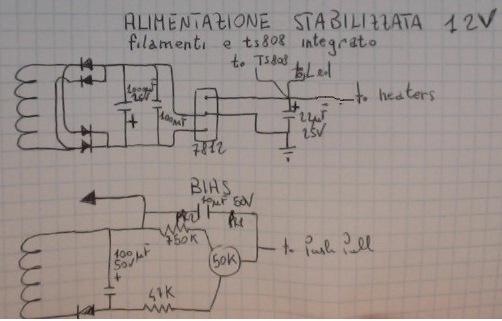 ALIMENTAZIONE STABILIZZATA 12V
filamenti e ts808 integrato
to TS808
to Led
to heaters
1000µF
25V
+
100µF
7812
+
22µF
25V
BIAS
10µF 50V
750K
50K
to Push Pull
100µF
50V
+
47K